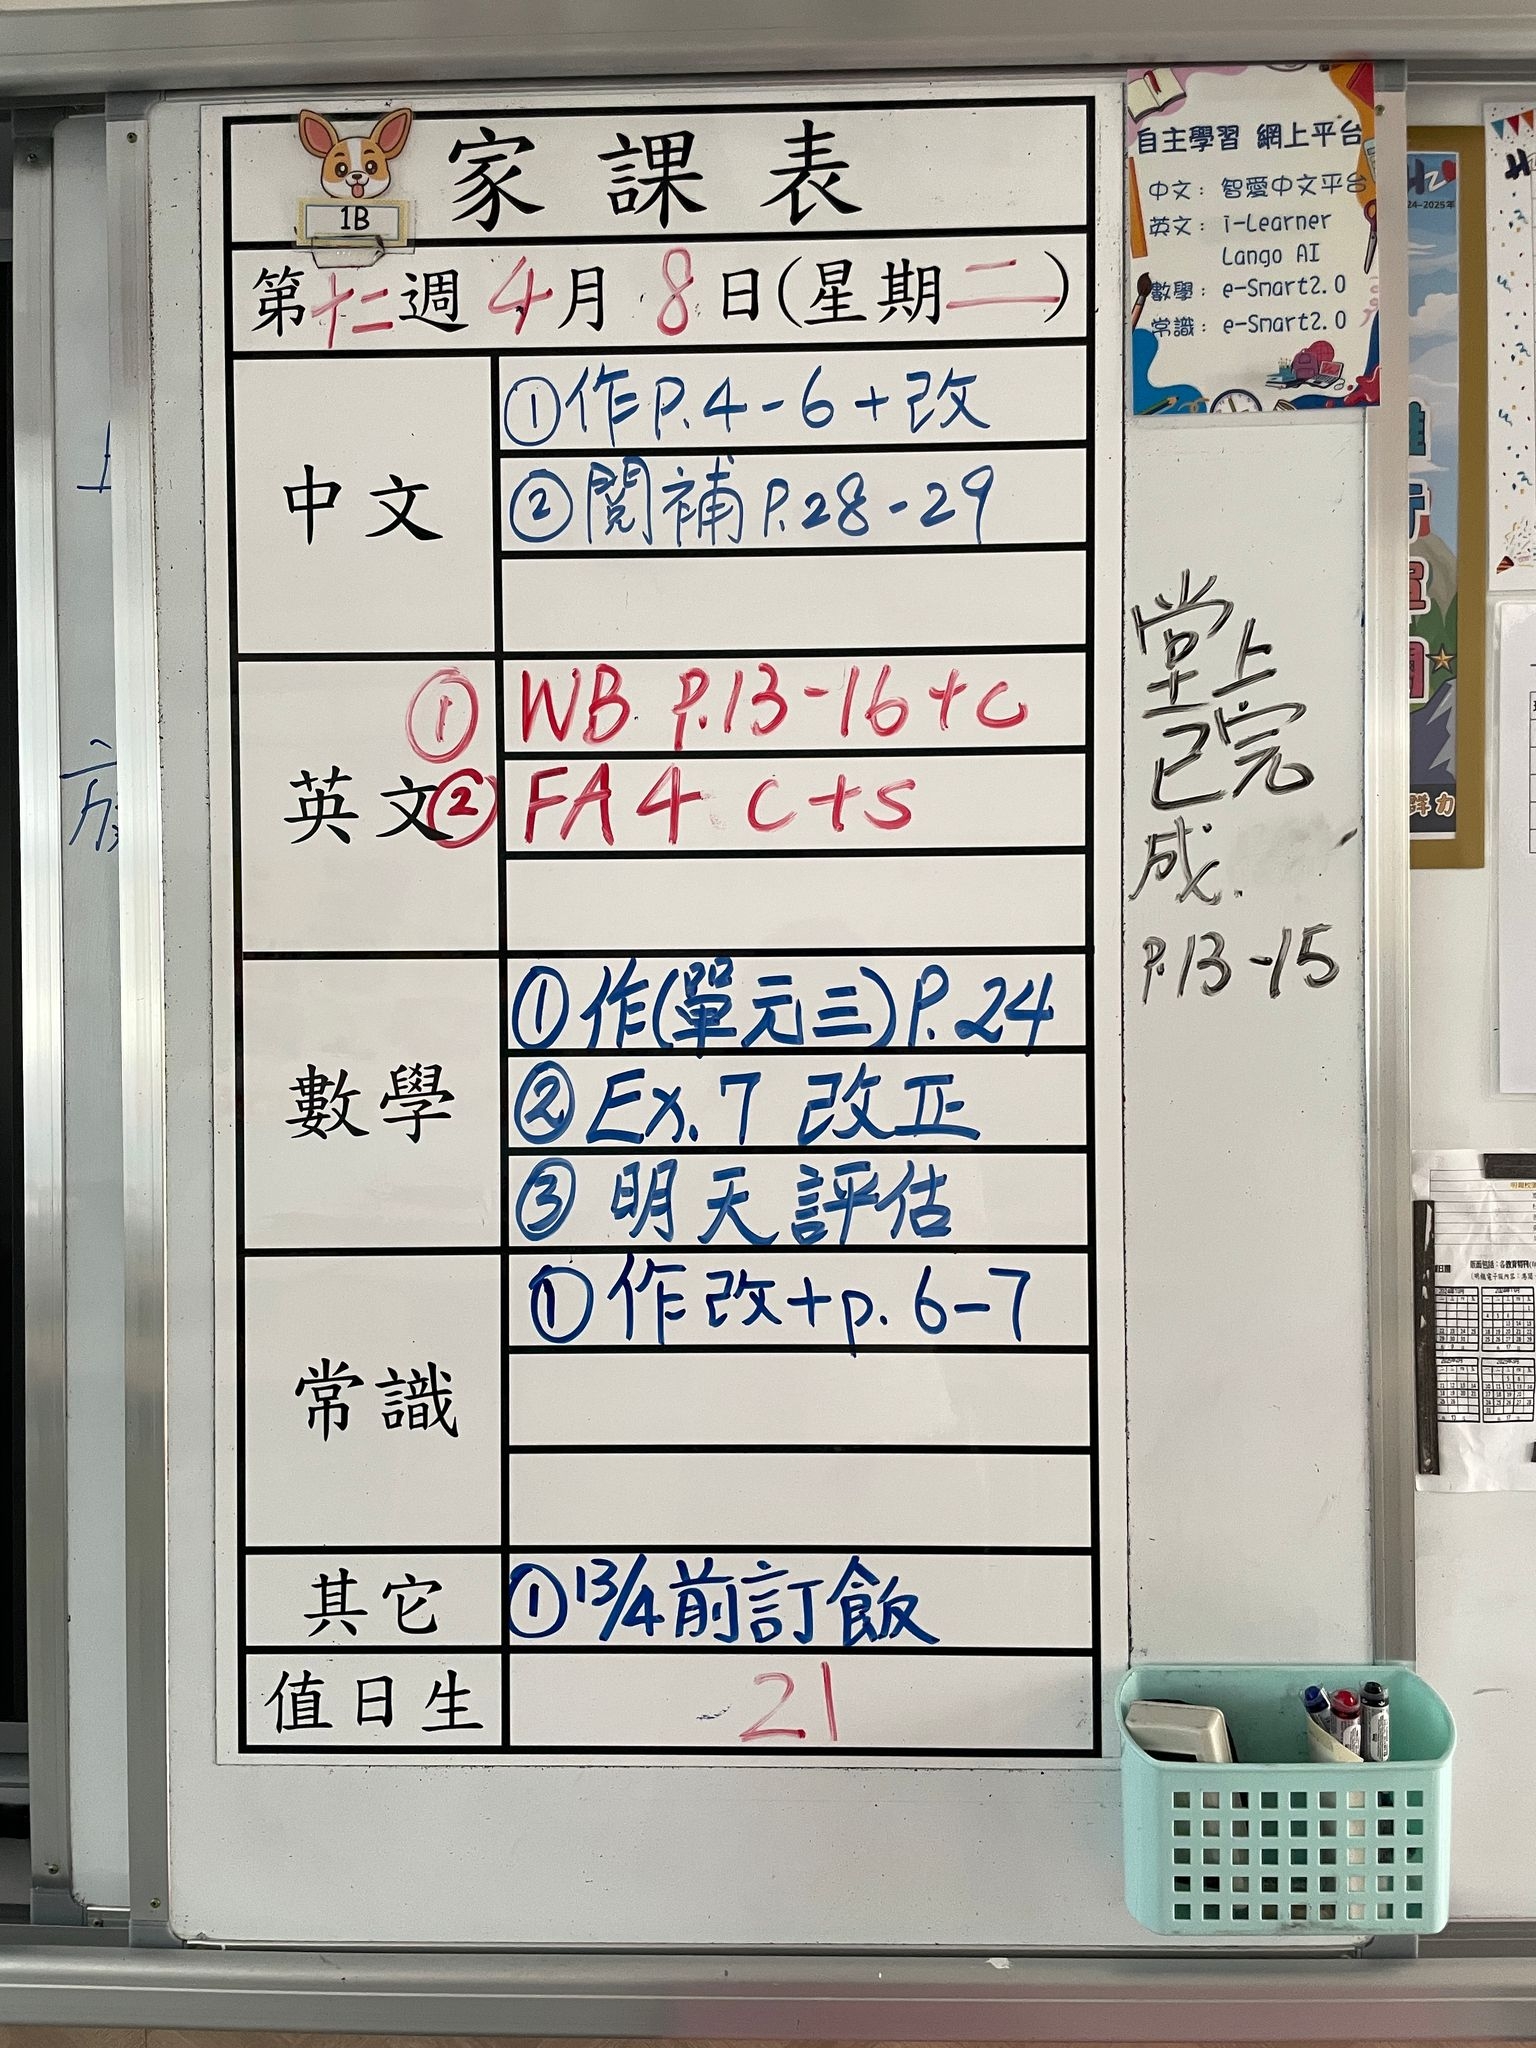 家課表
1B
第十二週 4月 8日(星期二)
中文
①作P.4-6+改
②閱補P.28-29
英文
① WB P.13-16+C
② FA4 C+S
數學
①作(單元三)P.24
②Ex.7 改正
③明天評估
常識
①作改+p.6-7
其它
①13/4前訂飯
值日生
21
自主學習 網上平台
中文: 智愛中文平台
英文: i-Learner
Lango AI
數學: e-Smart2.0
常識: e-Smart2.0
堂上
已完
成.
P.13-15